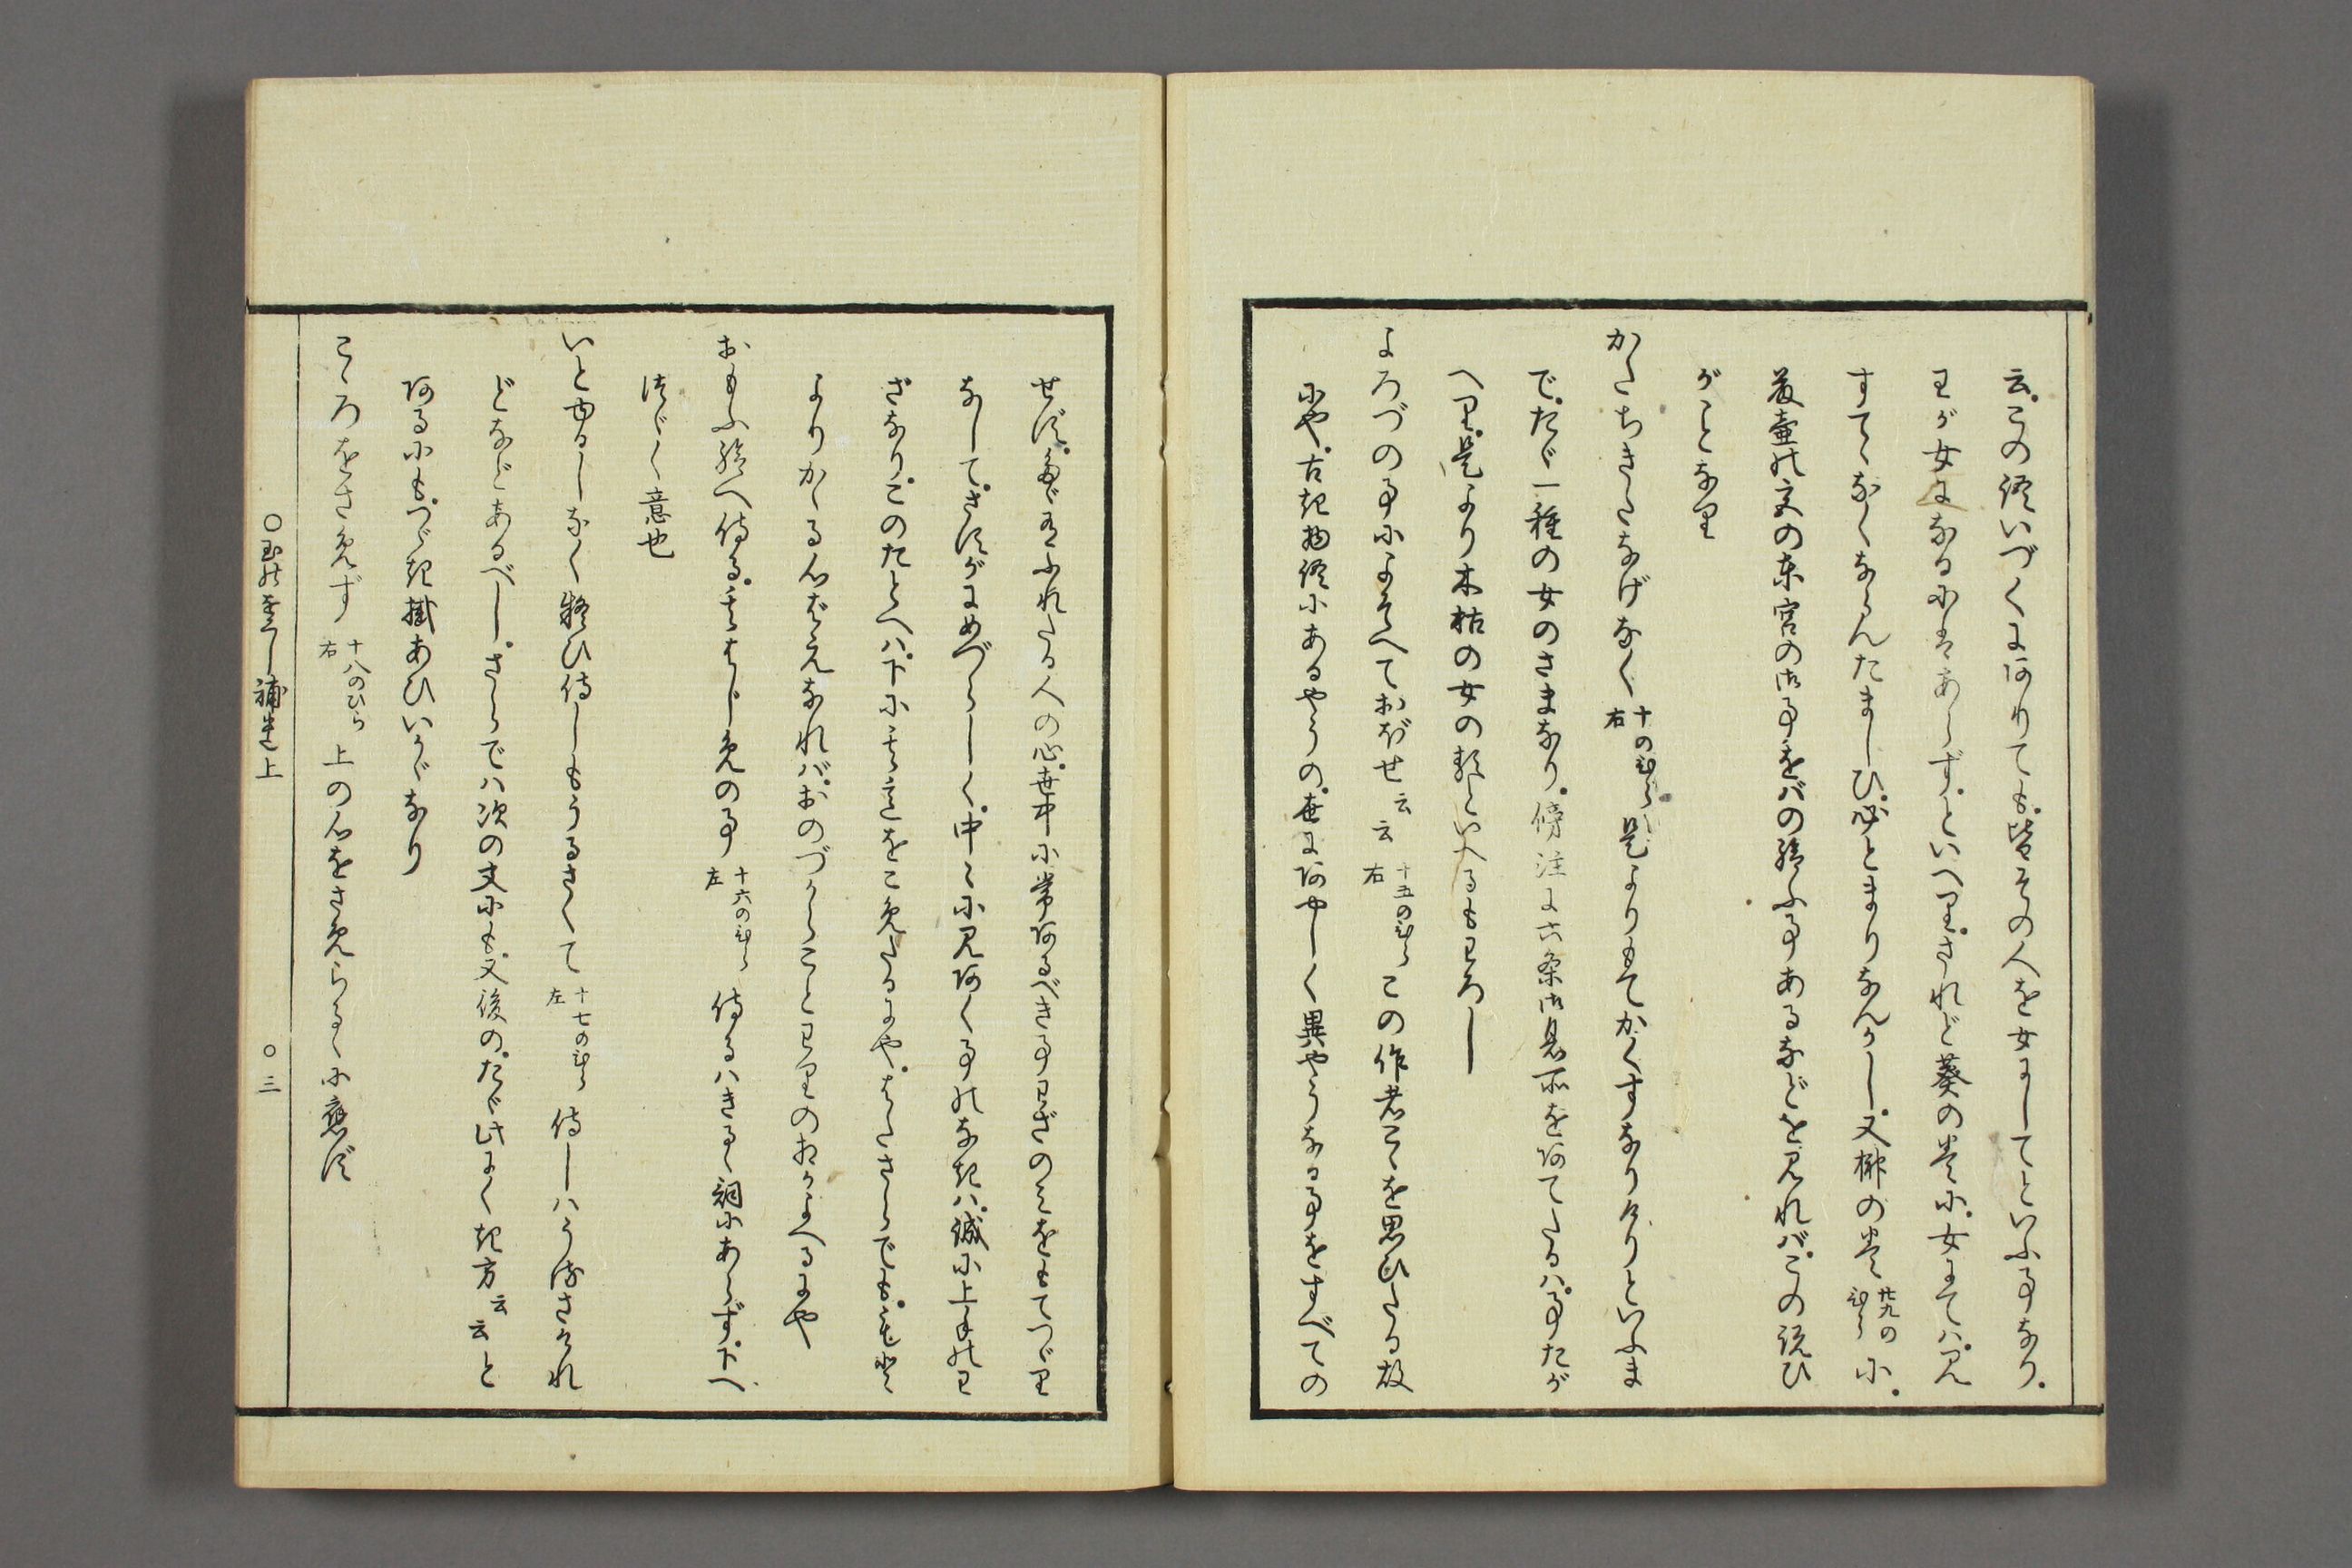 云。この註いづくにありても。皆その人を女にしてといふ事なり。
わが女になるにはあらず。といへり。されど葵の巻に。女にてはみ
すてゝなくならんたましひ。必とまりなんかし。又榊の巻 廿九のひら に。
藤壺の文の東宮の御事をばの給ふ事あるなどを見れば。この説ひ
がことなり
かたちきたなげなく 十のひら右 是よりもてかくすなりけりといふま
で。たゞ一種の女のさまなり。傍注に六条御息所をあてたるは。事たが
へり。是より木枯の女の類といへるもわろし
よろづの事によそへておぼせ云云 十五のひら右 この作者こゝを思ひたる故
にや。古き物語にあるやうの。世にあやしく異やうなる事をすべての
せず。たゞよにふれたる人の心。世中に常あるべき事わざのみをもてつゞり
なして。さすがにめづらしく。中々に見あくことのなきは。誠に上手のわ
ざなり。このたとへは。下に其意をこめたるにや。はたさらでも。
よりかゝる心ばえなれば。おのづからことわりのおのへるにや
おもふ給へ侍る。はじめの事 十六のひら左 侍るはきるゝ詞にあらず。下へ
つゞく意也
いとゆるしなく疑ひ侍しもうるさくて 十七のひら左 侍しはうるさけれ
どなどあるべし。さらでは次の文にも。又後の。たゞひたふるによき方云云と
あるにも。つゞき掛あひいかゞなり
こゝろをさめず 十八のひら右 上の心をさめらるゝに応ず
○玉の小櫛補遺上 ○三